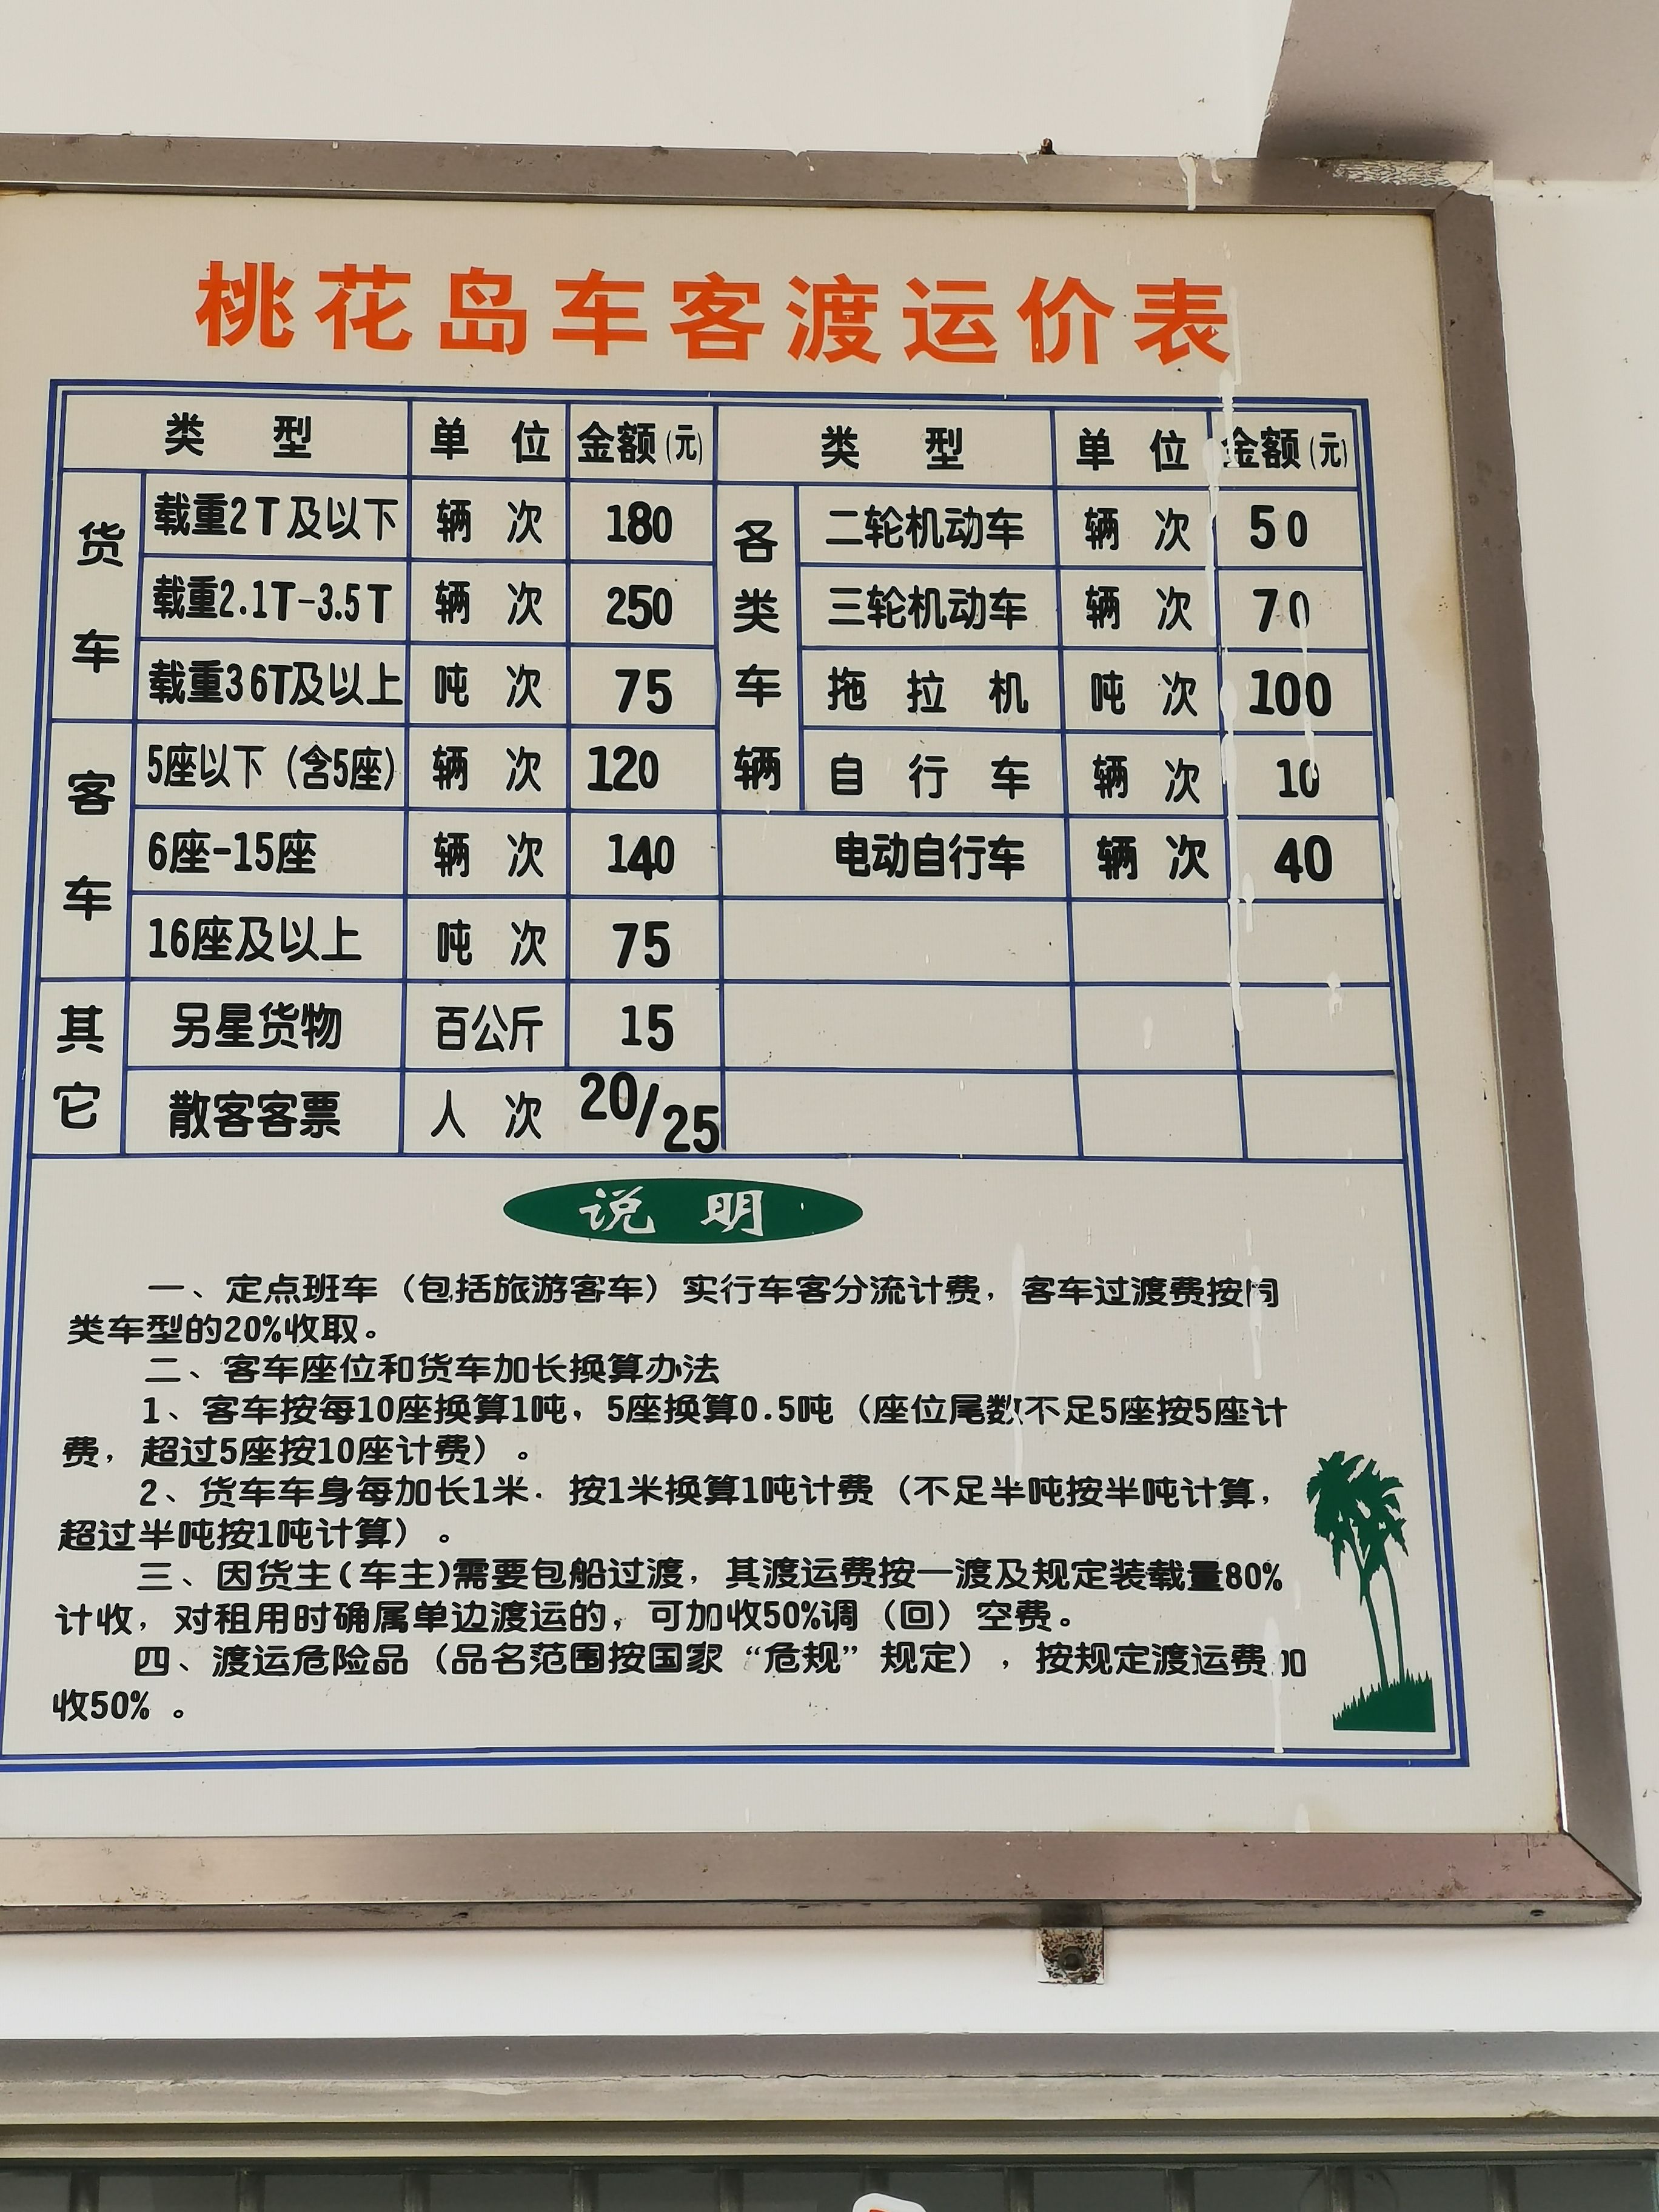 桃花岛车客渡运价表
类型 单位 金额(元) 类型 单位 金额(元)
货车 载重2T及以下 辆次 180 各类车辆 二轮机动车 辆次 50
载重2.1T-3.5T 辆次 250 三轮机动车 辆次 70
载重36T及以上 吨次 75 拖拉机 吨次 100
客车 5座以下（含5座） 辆次 120 自行车 辆次 10
6座-15座 辆次 140 电动自行车 辆次 40
16座及以上 吨次 75
其它 另星货物 百公斤 15
散客客票 人次 20/25
说明
一、定点班车（包括旅游客车）实行车客分流计费，客车过渡费按同
类车型的20%收取。
二、客车座位和货车加长换算办法
1、客车按每10座换算1吨，5座换算0.5吨（座位尾数不足5座按5座计
费，超过5座按10座计费）。
2、货车车身每加长1米．按1米换算1吨计费（不足半吨按半吨计算，
超过半吨按1吨计算）。
三、因货主(车主)需要包船过渡，其渡运费按一渡及规定装载量80%
计收，对租用时确属单边渡运的，可加收50%调（回）空费。
四、渡运危险品（品名范围按国家“危规”规定），按规定渡运费加
收50%。